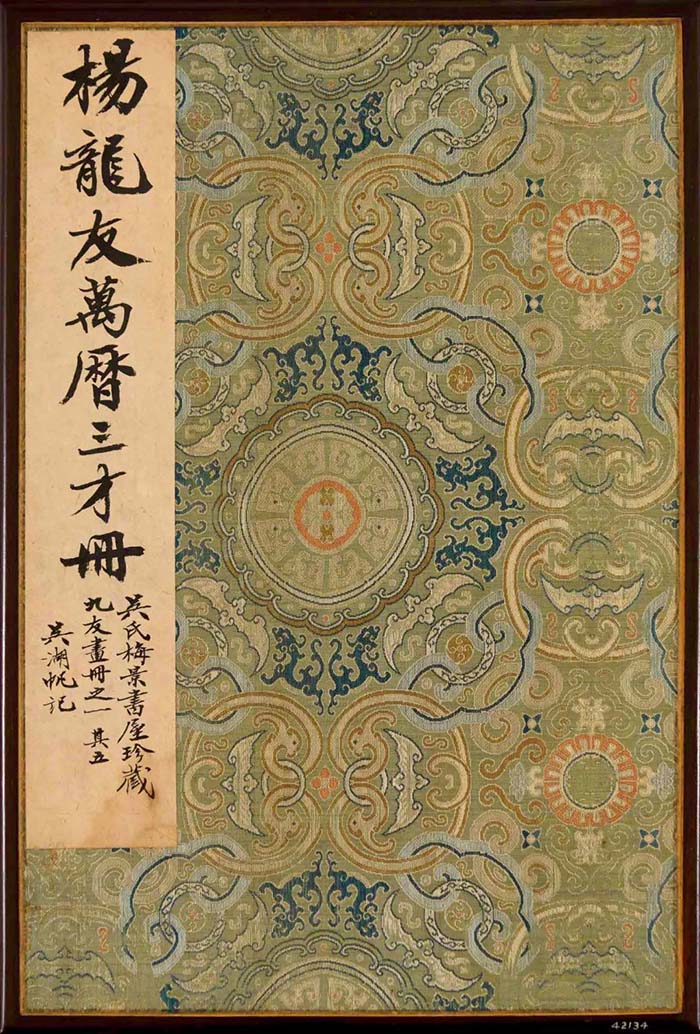 楊龍友萬曆三才冊
吳氏梅景書屋珍藏
九友畫冊之一 其五
吳湖帆記
42134